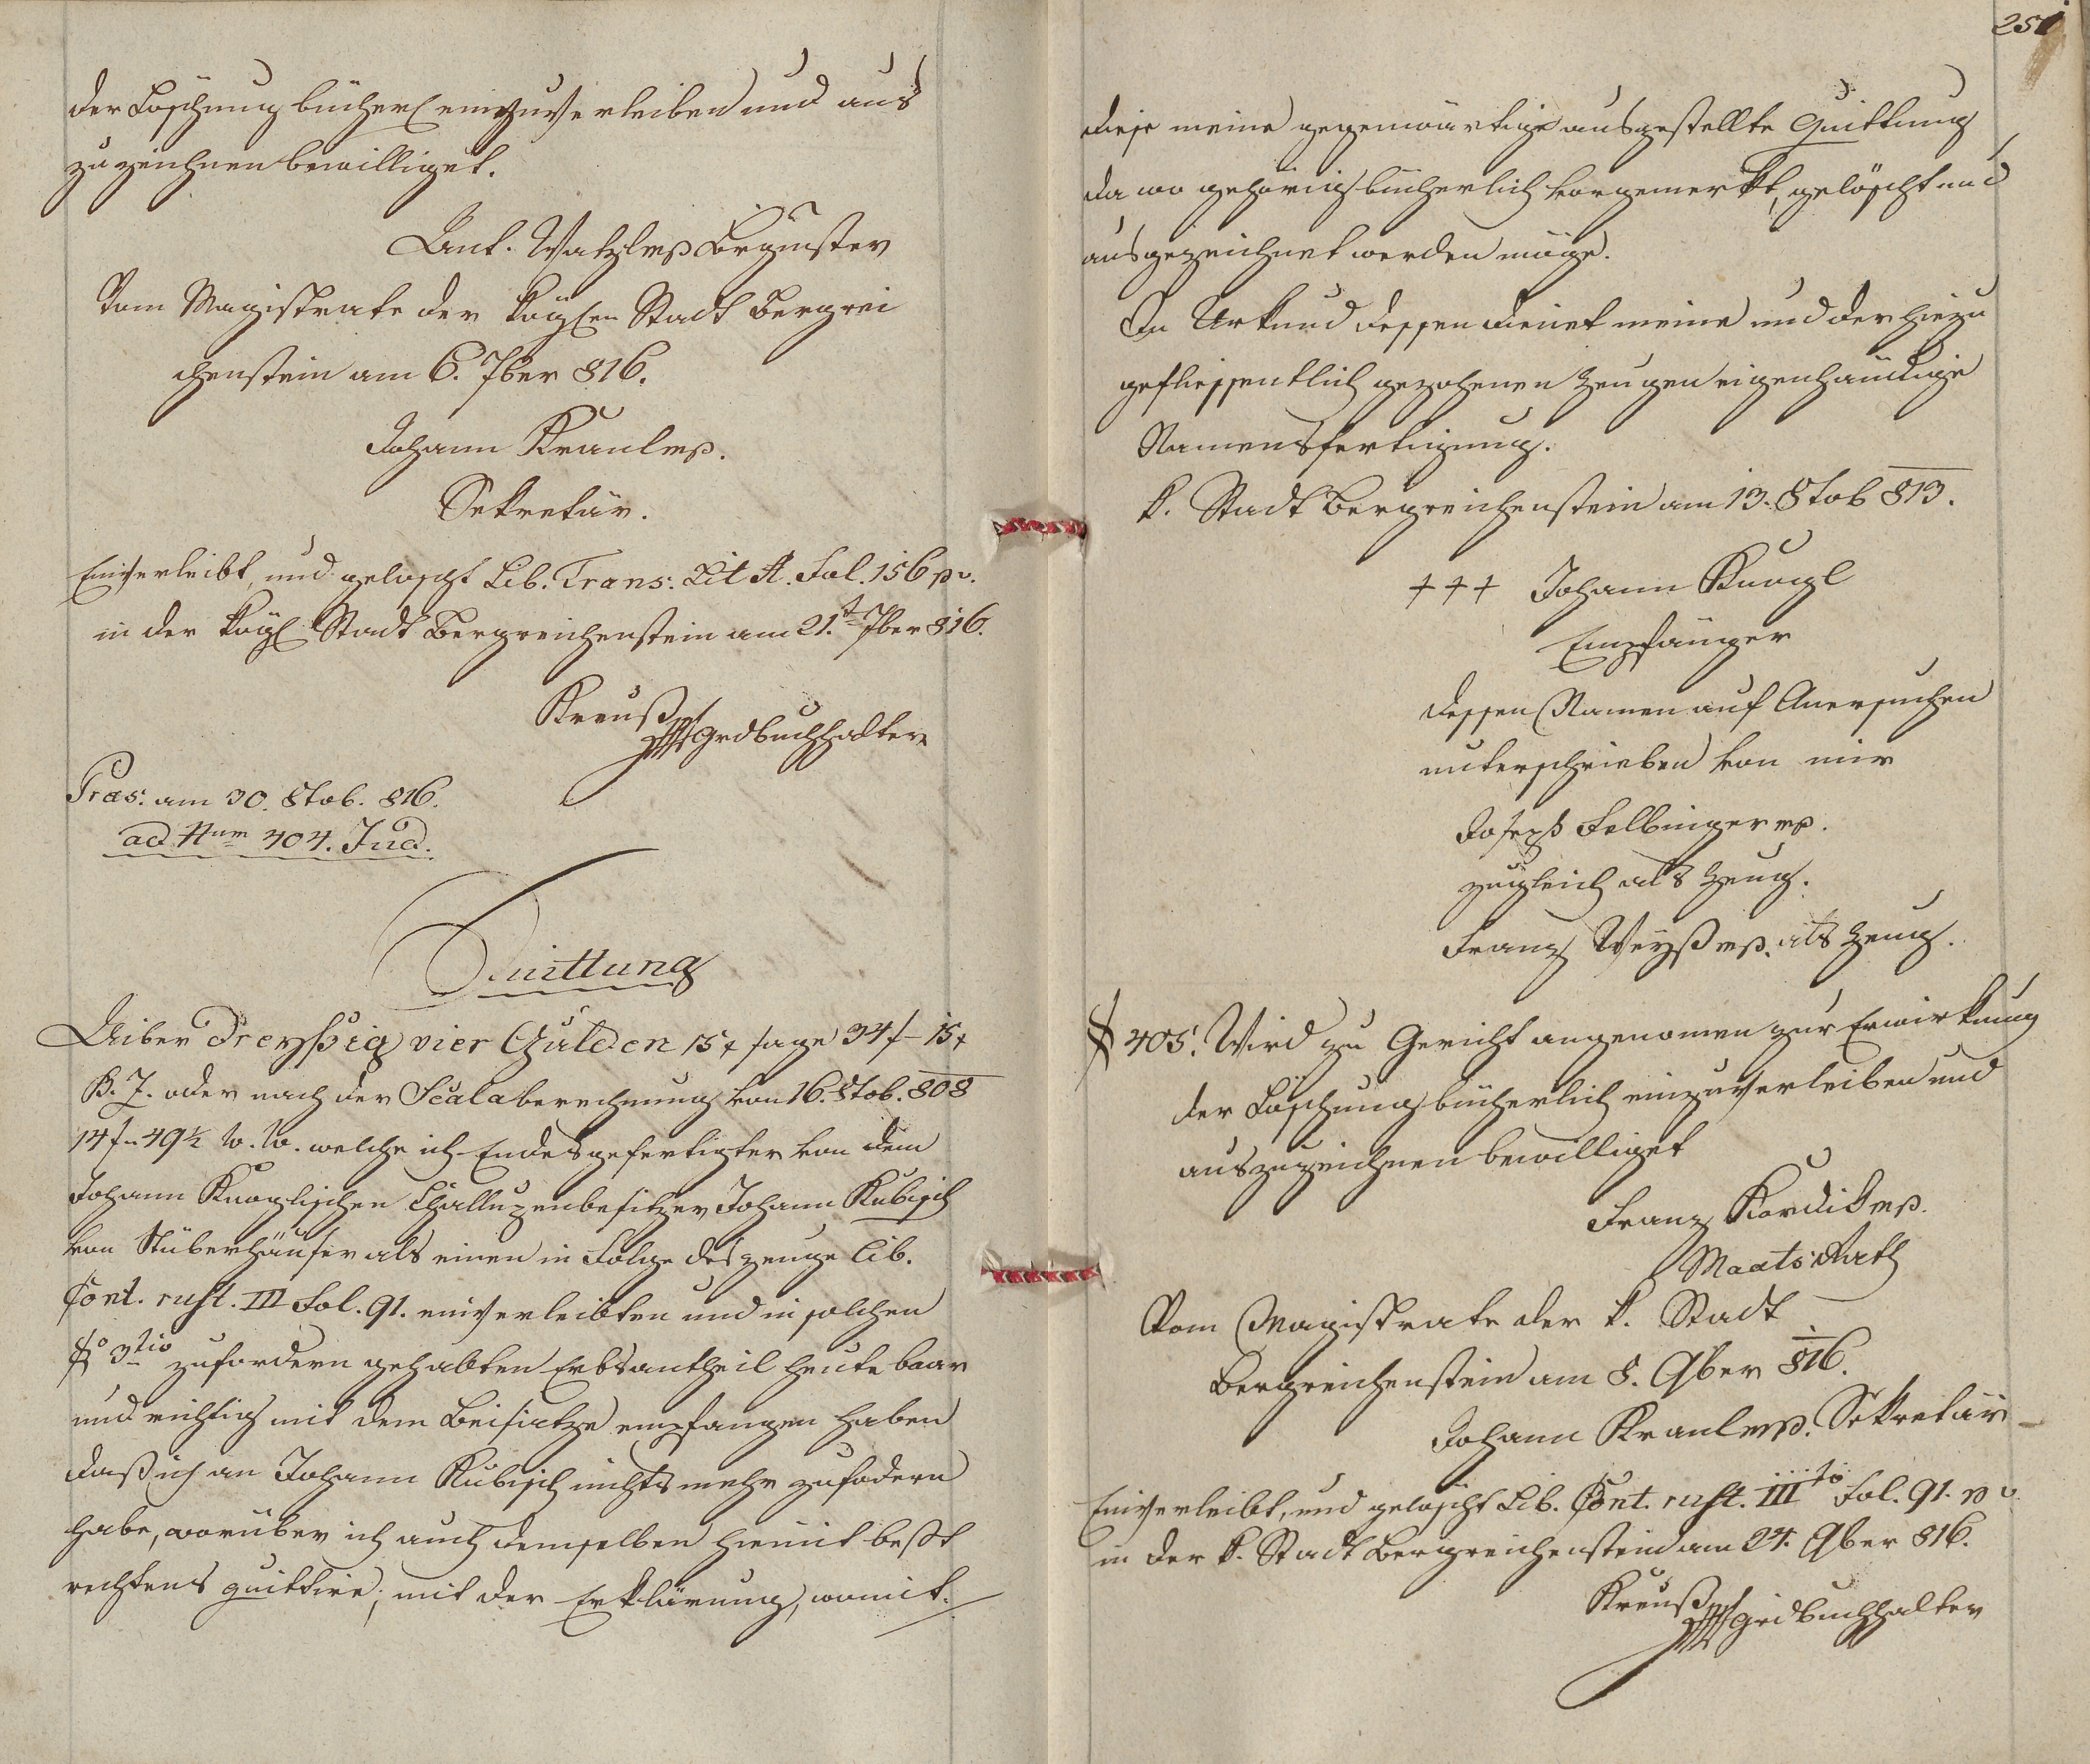 der Löschung bücherl einzuverleiben und aus
zuzeichnen bewilliget.
Ant. Watzl mp Brgmster
Vom Magistrate der köglen Stadt Bergrei
chenstein am 6. 7ber 816.
Johann Kraul mp.
Sekretär.
Einverleibt, und gelöscht Lib. Trans: Lit A. Fol. 156 p v.
in der kögl Stadt Bergreichenstein am 21.t 7ber 816.
Kreuß
Grdbuchhalter
Præs: am 30. 8tob. 816.
ad Num 404. Jud.
Quittung
Uiber Dreyßig vier Gulden 15 x sage 34 f – 15 x
B. Z. oder nach der Scalaberechnung von 16. 8tob. 808
14 f – 49 ½ W. W. welche ich Endesgefertigter von dem
Johann Knoglischen Challupenbesitzer Johann Kubisch
von Stüberhäuser als einen in Folge des zeuge Lib.
Cont. rust. III Fol. 91. einverleibten und in solchen
§o 3tio zufordern gehabten Erbsantheil heute baar
und richtig mit dem Beisatze empfangen haben
daß ich an Johann Kubisch nichts mehr zufodern
habe, worüber ich auch demselben hiemit best
rechtens quittire; mit der Erklärung, womit
251
diese meine gegenwärtige ausgestellte Quittung
da wo gehörig bücherlich vorgemerkt, gelöscht und
ausgezeichnet werden möge.
In Urkund dessen dienet meine und der hiezu
geflissentlich gezohenen Zeugen eigenhändige
Namensfertigung.
k. Stadt Bergreichenstein am 13. 8tob 813.
+++ Johann Knogl
Empfänger
dessen Namen auf Anersuchen
unterschrieben von mir
Joseph Felbinger mp.
zugleich als Zeug.
Franz Weyß mp. als Zeug.
§ 405. Wird zu Gericht angenomen zur Erwirkung
der Löschung bücherlich einzuverleiben und
auszuzeichnen bewilliget
Franz Kordik mp.
Maats Rath
Vom Magistrate der k. Stadt
Bergreichenstein am 8. 9ber 816.
Johann Kraul mp. Sekretär
Einverleibt, und gelöscht Lib. Cont. rust. IIIto Fol. 91. p v.
in der k. Stadt Bergreichenstein am 24. 9ber 816.
Kreuß
Grdbuchhalter